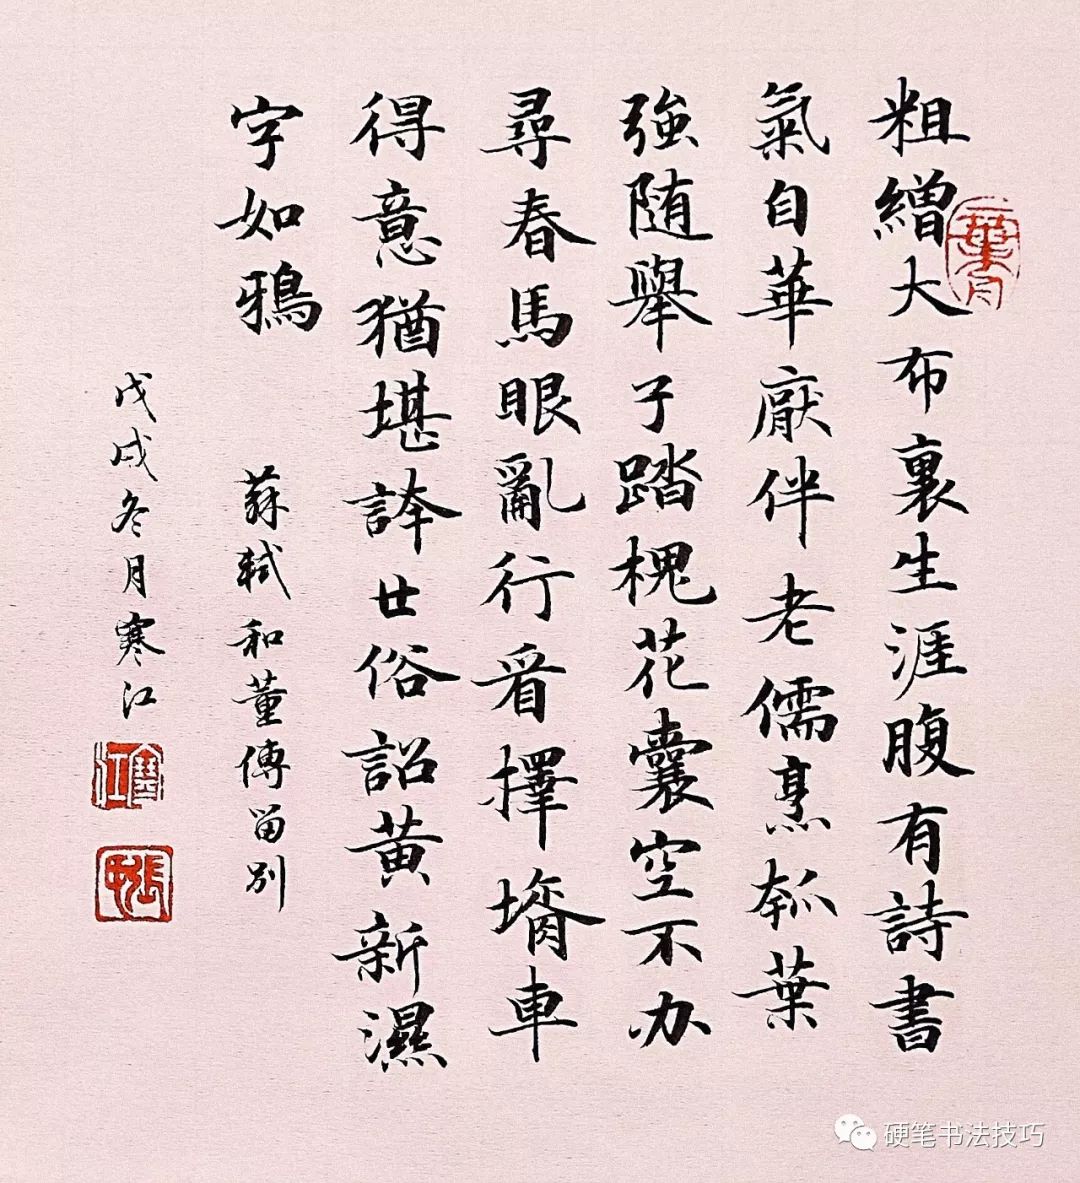 粗繒大布裏生涯腹有詩書
氣自華厭伴老儒烹瓠葉
強随舉子踏槐花囊空不办
尋春馬眼亂行看擇壻車
得意猶堪誇世俗詔黃新濕
字如鴉
蘇軾和董傳留別
戊戌冬月寒江
硬笔书法技巧